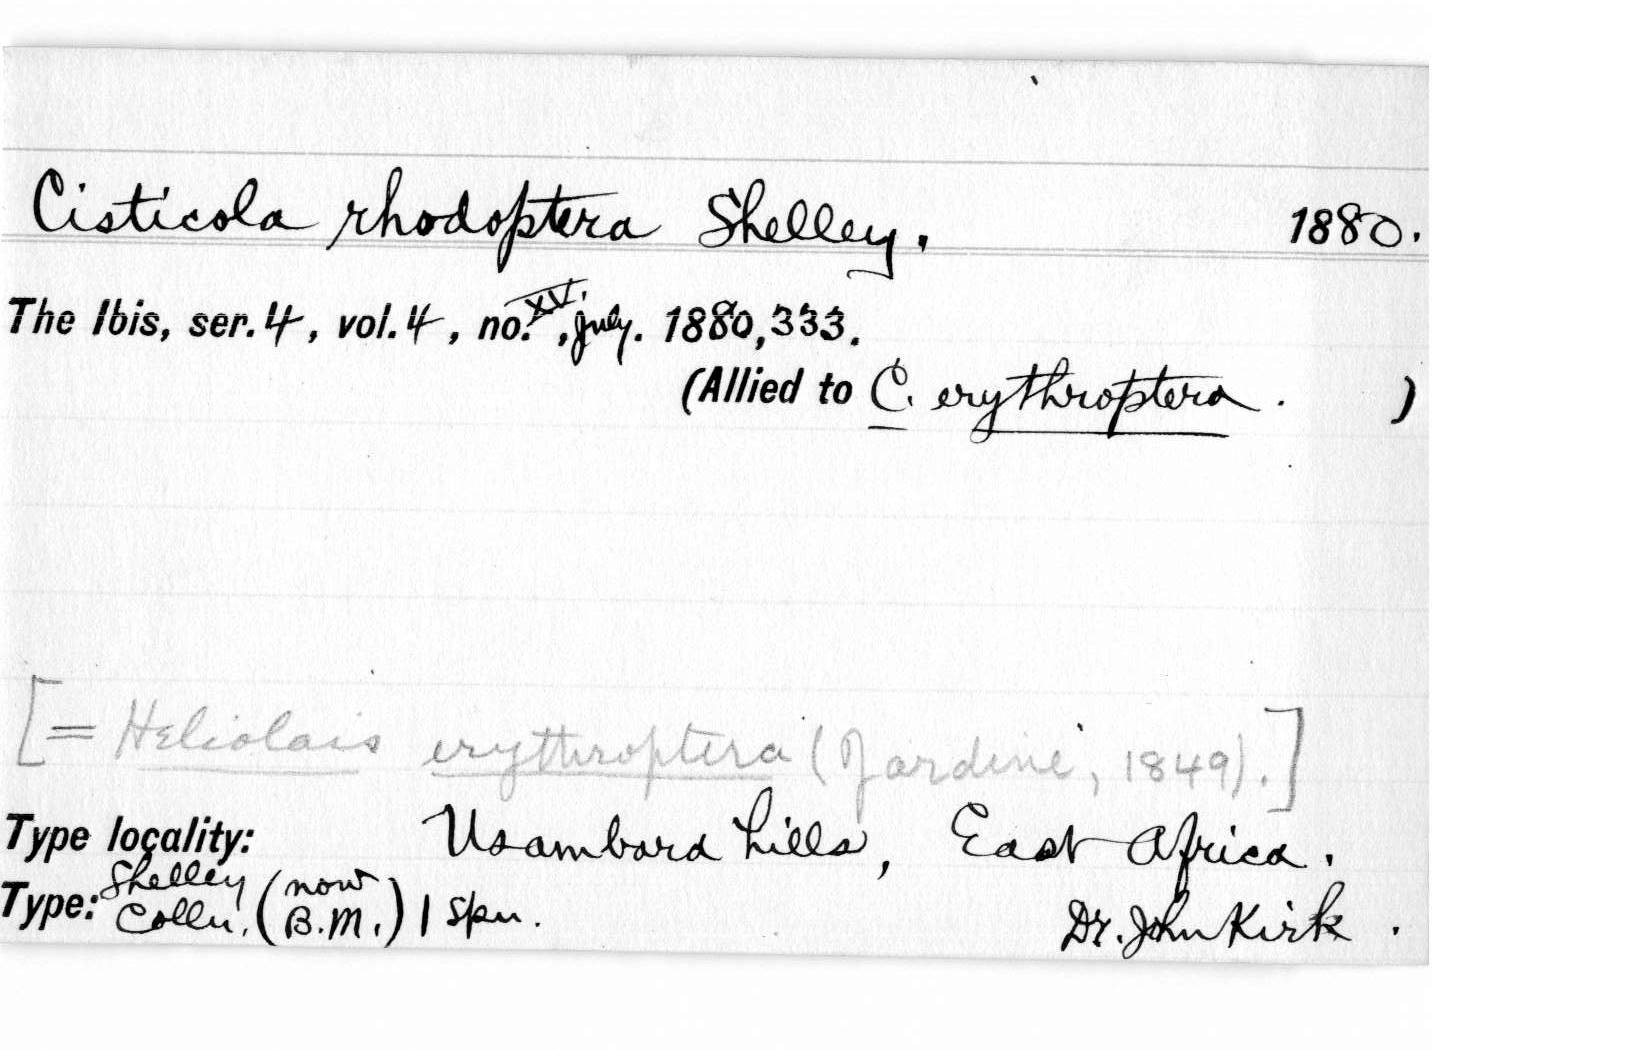 Cisticola rhodoptera Shelley. 1880.
The Ibis, ser. 4, vol. 4, no. XV., July. 1880, 333.
(Allied to C. erythroptera. )
[= Heliolais erythroptera (Jardine, 1849).]
Type locality: Usambara hills, East Africa.
Type: Shelley Colln. (now B.M.) 1 spm. Dr. John Kirk.